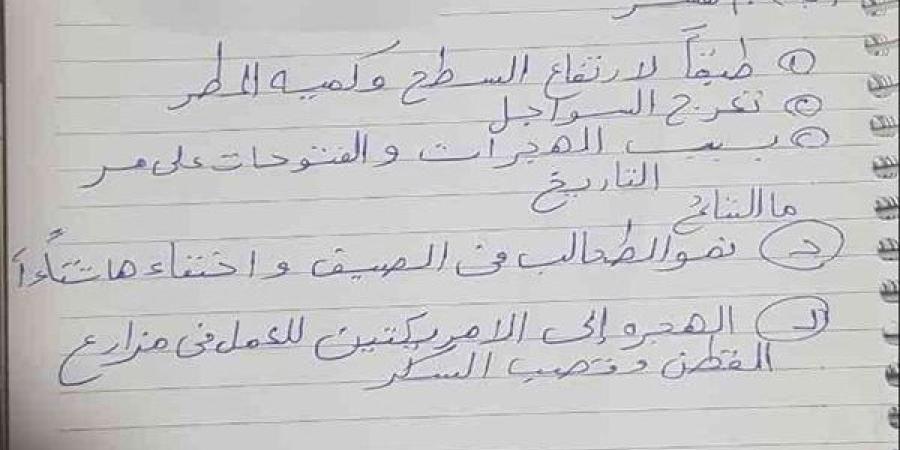 ① طبقاً لارتفاع السطح وكميه المطر
② تعرج السواحل
③ بسبب الهجرات والفتوحات على مر
التاريخ
ما النتائج
① نمو الطحالب فى الصيف واختفاءها شتاءاً
② الهجره إلى الامريكتين للعمل فى مزارع
القطن وقصب السكر